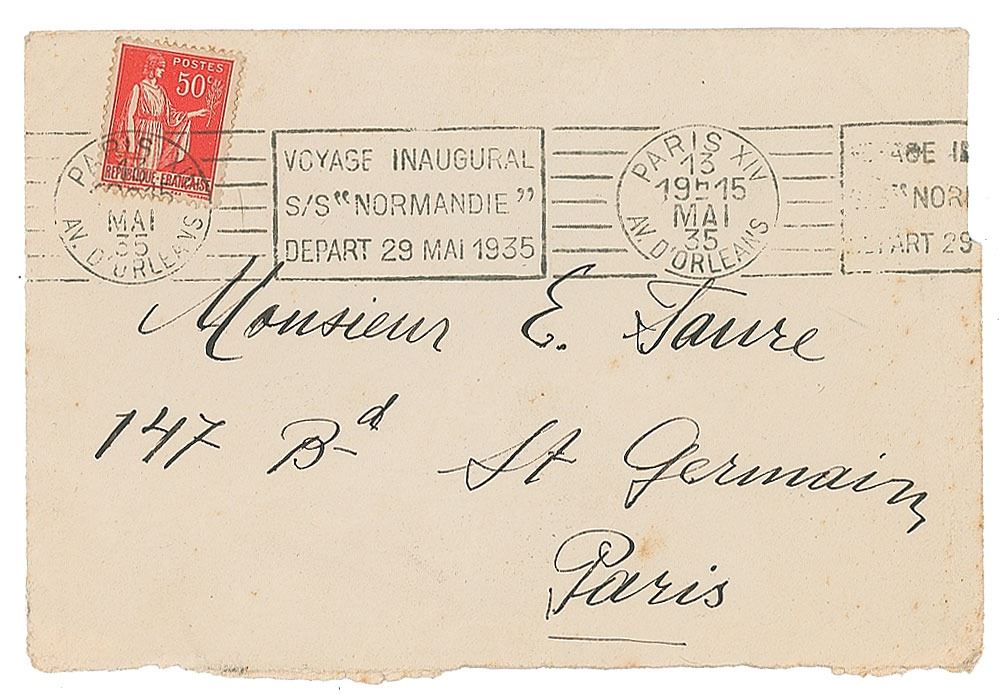 POSTES
50c
REPUBLIQUE·FRANÇAISE
PARIS XIV
MAI
35
AV. D'ORLEANS
VOYAGE INAUGURAL
S/S "NORMANDIE"
DEPART 29 MAI 1935
PARIS XIV
13
19H15
MAI
35
AV. D'ORLEANS
AGE IN
"NOR
PART 29
Monsieur E. Faure
147 Bd St Germain
Paris